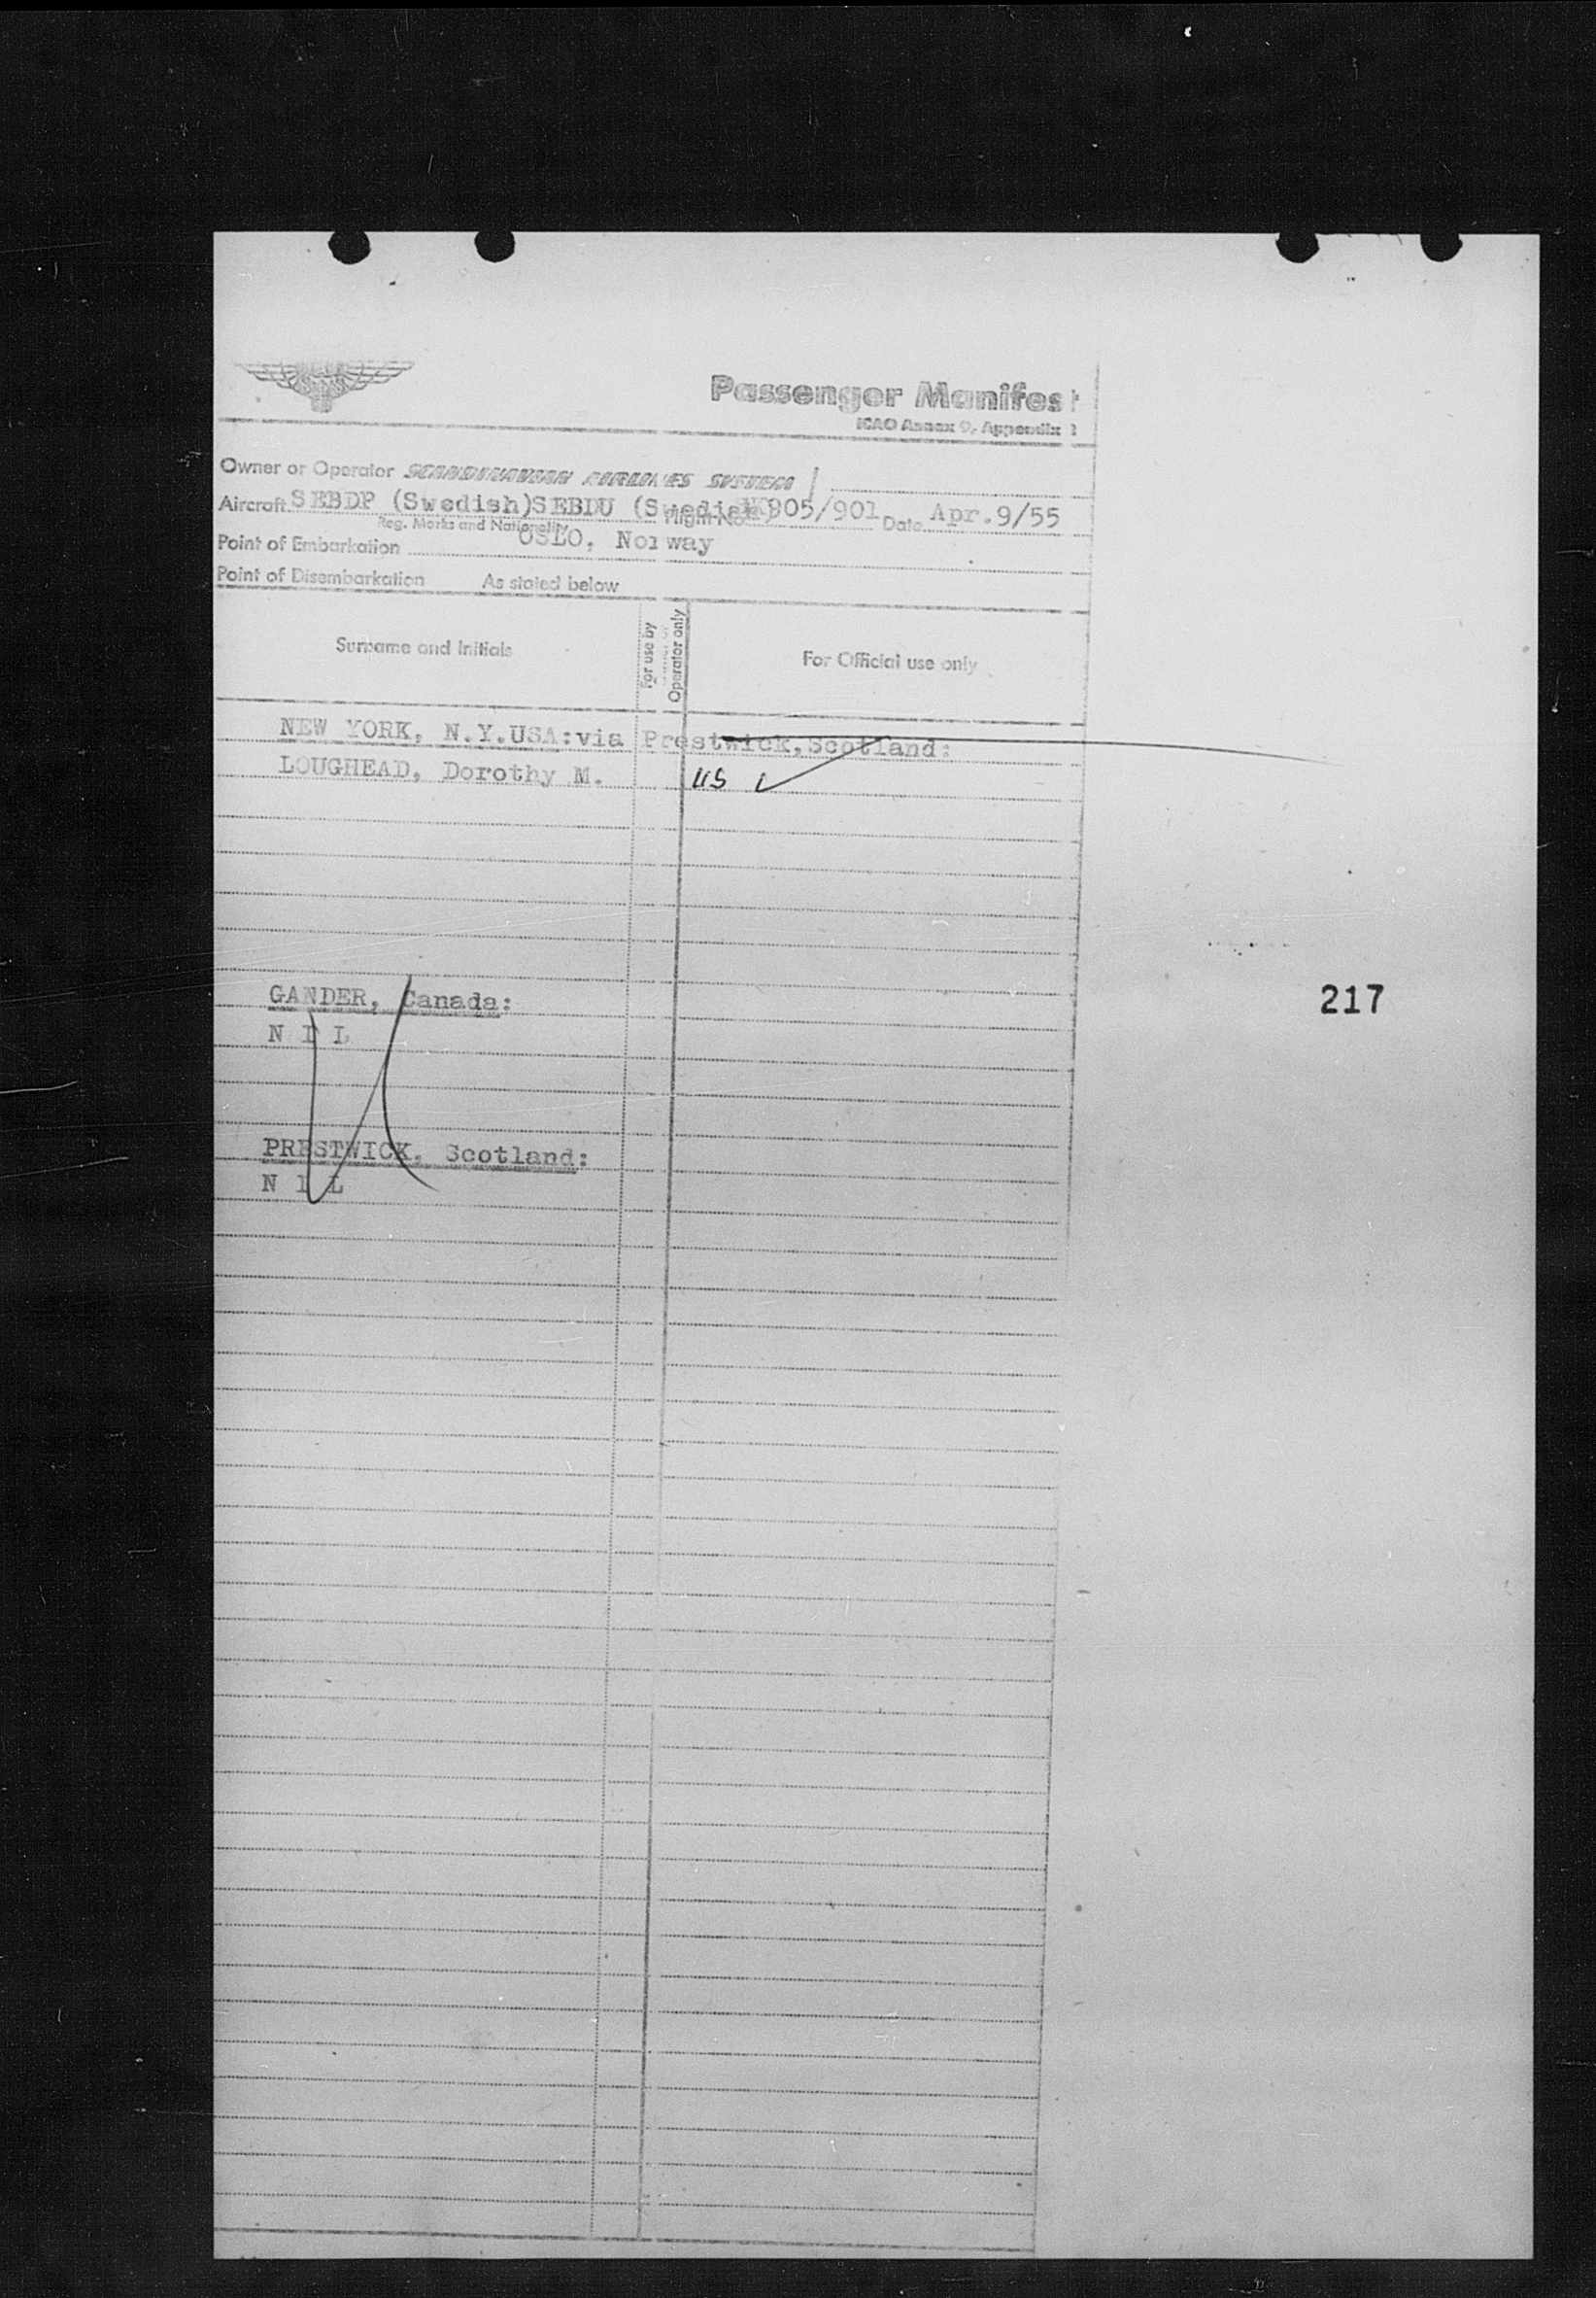 Passenger Manifest
ICAO Annex 9, Appendix 3
Owner or Operator SCANDINAVIAN AIRLINES SYSTEM
Aircraft SEBDP (Swedish)SEBDU (Swedish) 905/901 Date Apr.9/55
Reg. Marks and Nationality Flight No
Point of Embarkation OSLO, Norway
Point of Disembarkation As stated below
Surname and Initials For use by Operator only For Official use only
NEW YORK, N.Y.USA:via Prestwick,Scotland:
LOUGHEAD, Dorothy M. US
GANDER, Canada:
N I L
217
PRESTWICK, Scotland:
N I L